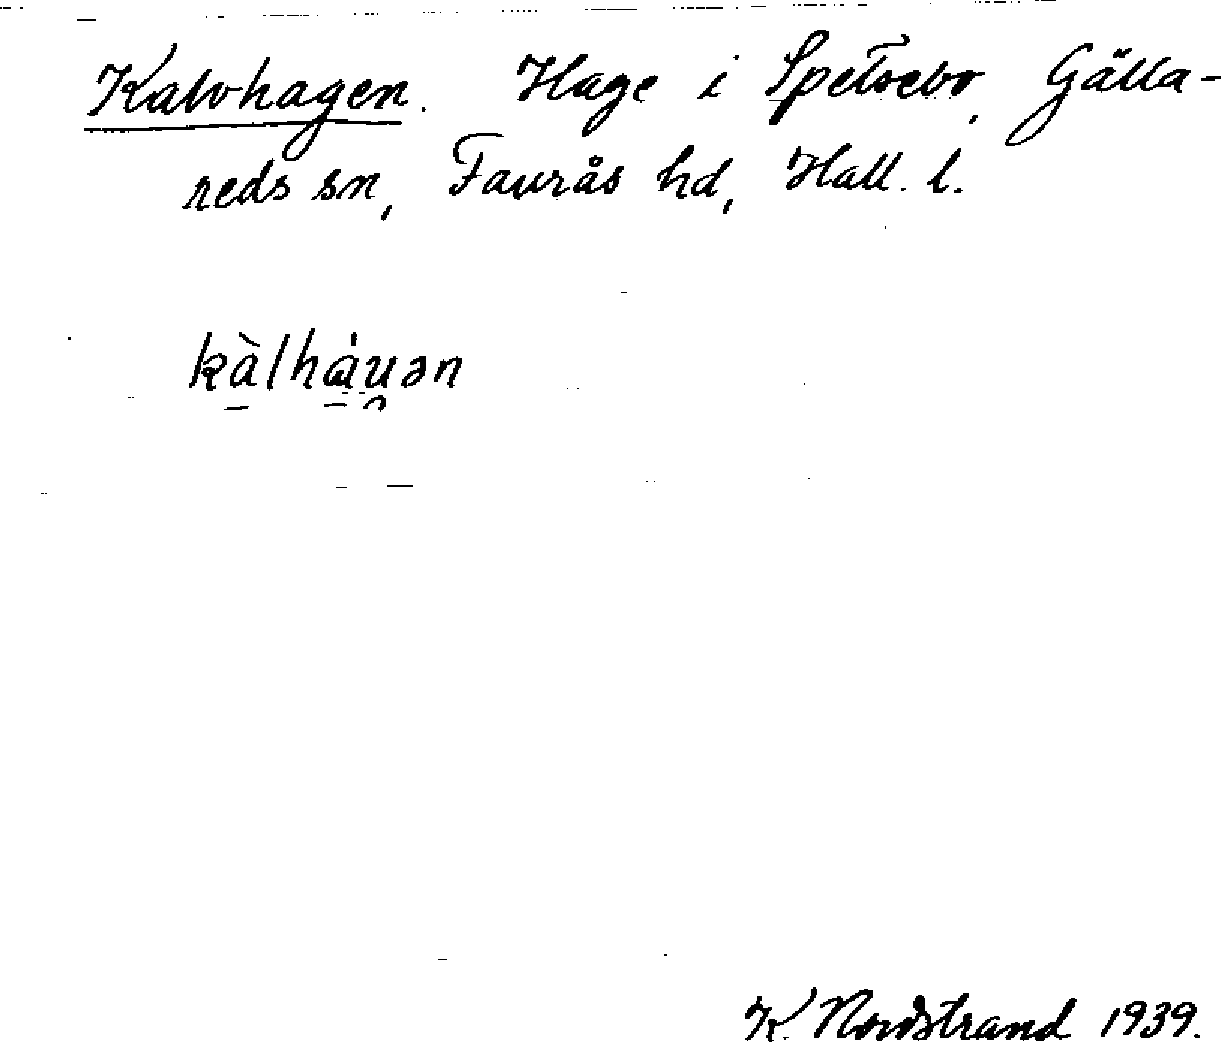 Kalvhagen. Hage i Spetsebo, Gälla-
reds sn, Faurås hd, Hall. l.
kàlháu̯ən
K. Nordstrand 1939.